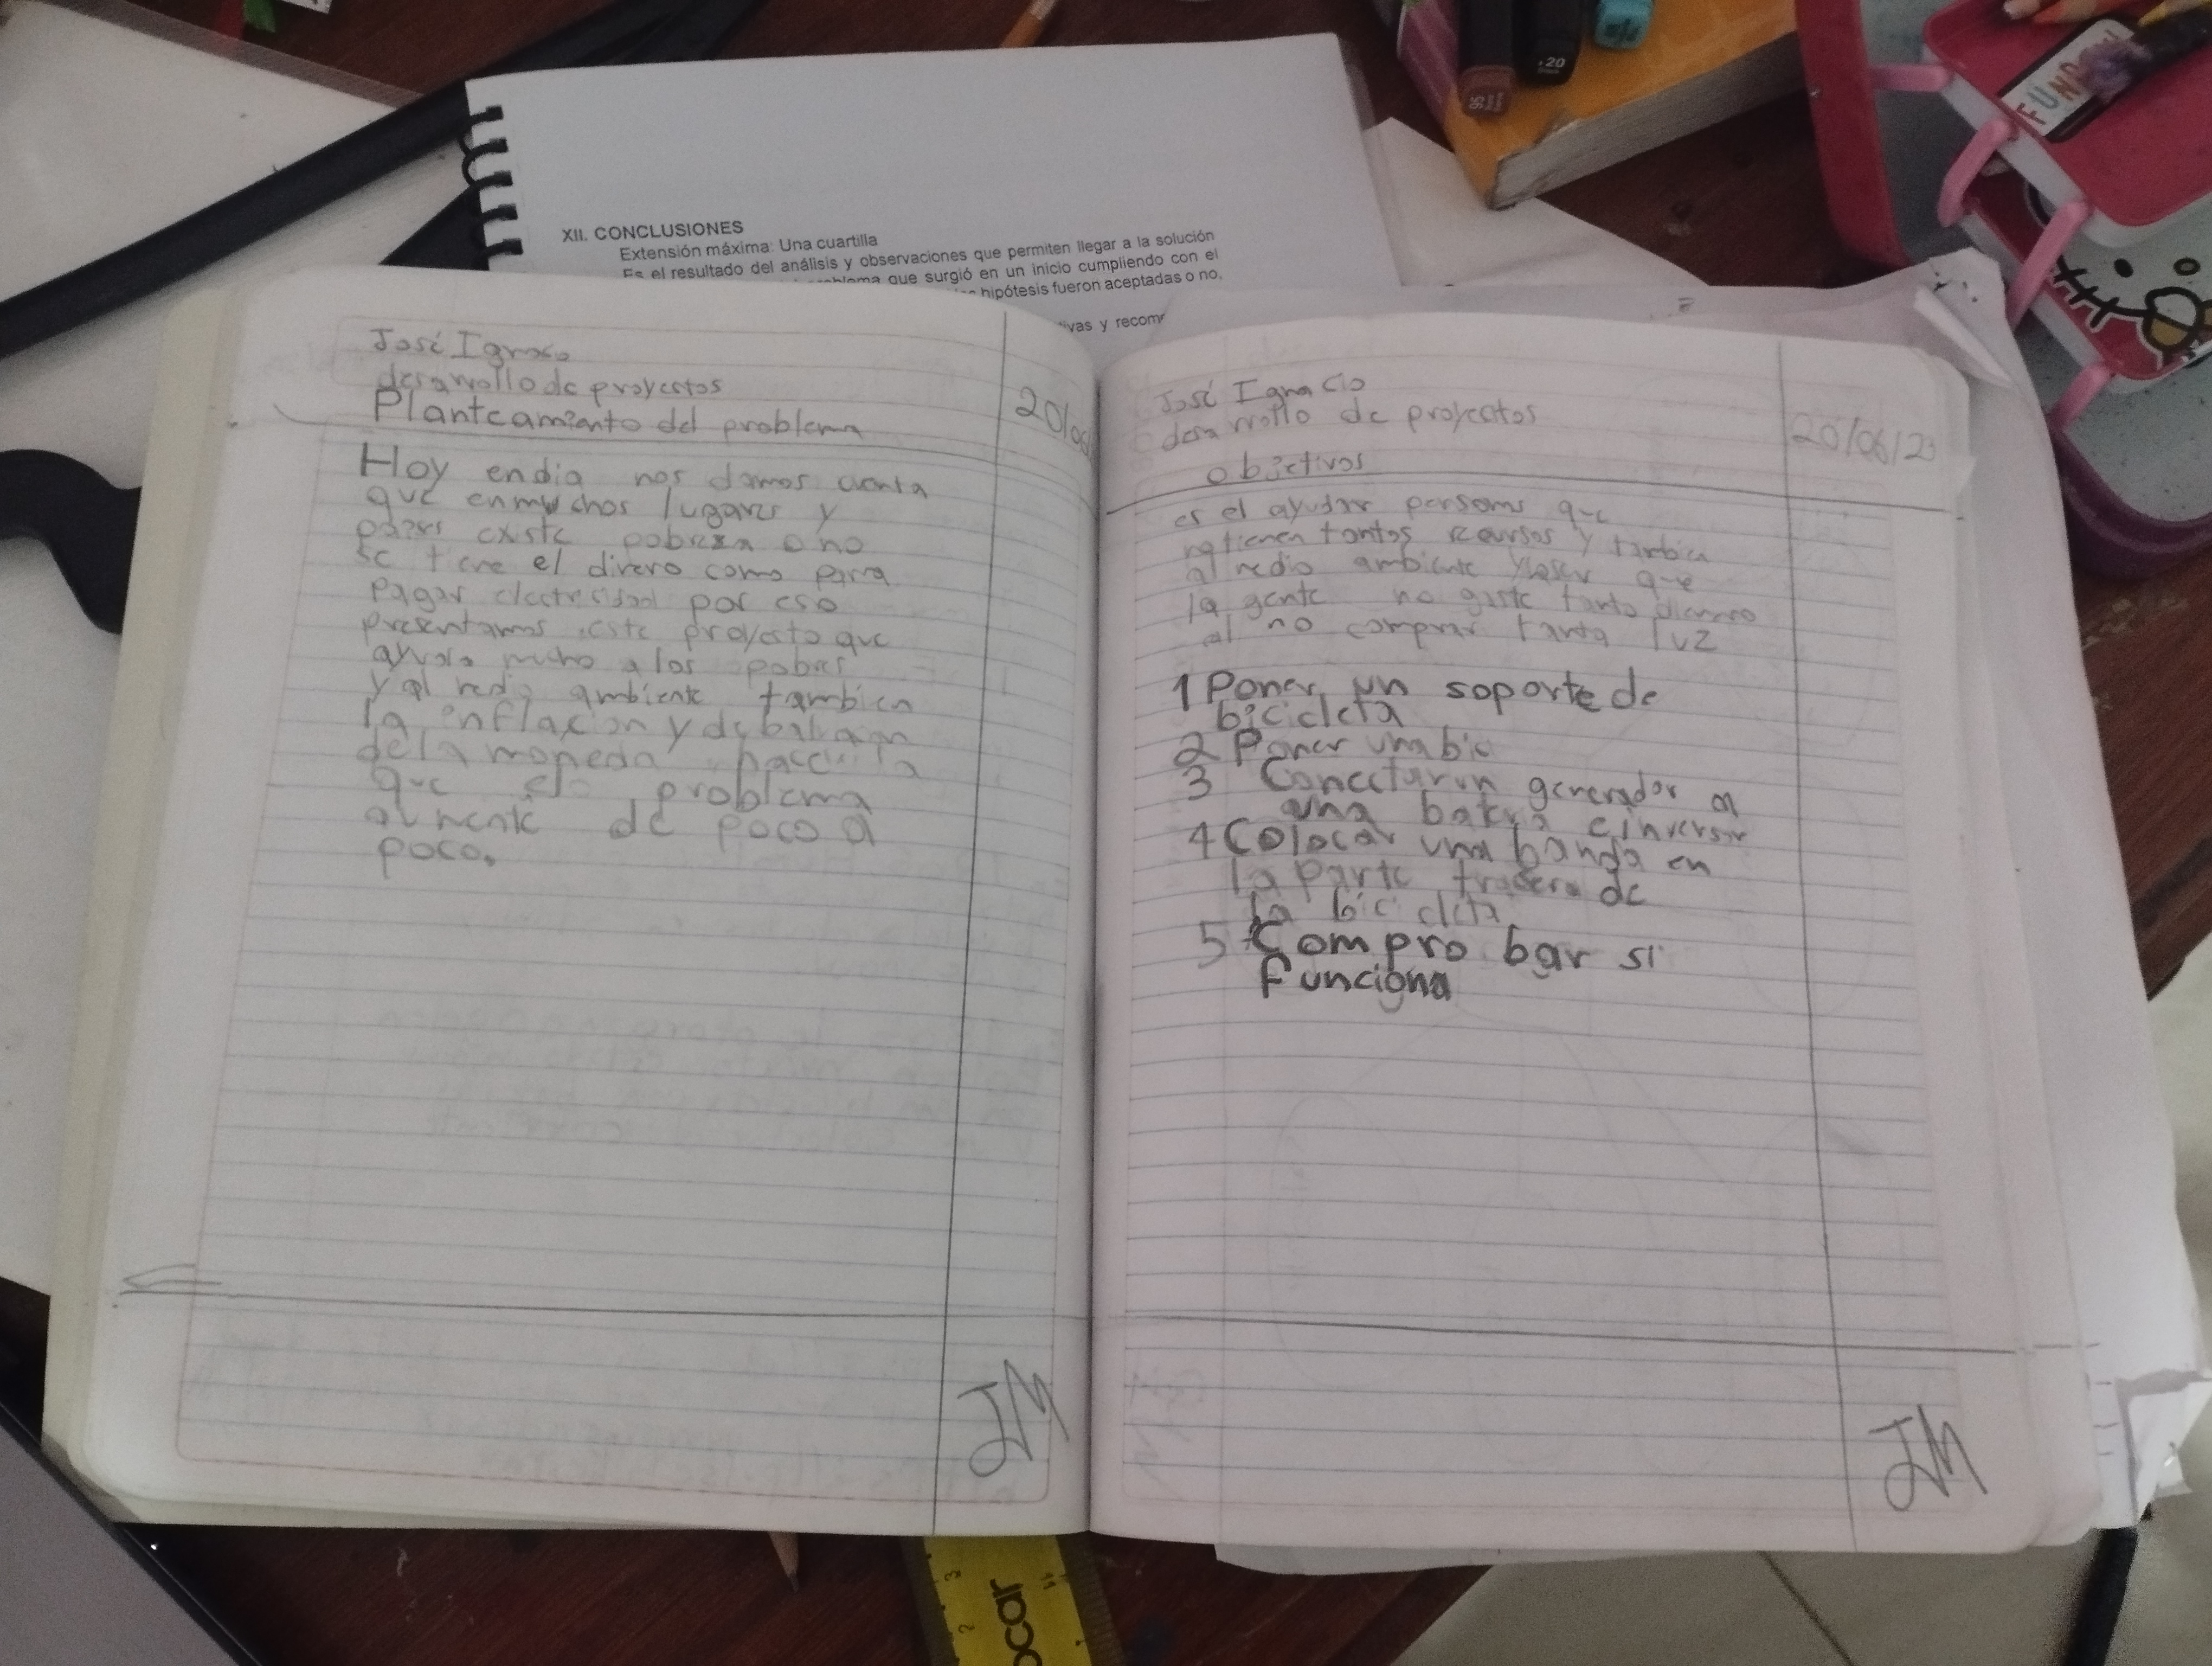 XII. CONCLUSIONES
Extensión máxima: Una cuartilla
Es el resultado del análisis y observaciones que permiten llegar a la solución
que surgió en un inicio cumpliendo con el
hipótesis fueron aceptadas o no,
ivas y recom
José Ignacio
desarrollo de proyectos
Planteamiento del problema
20/06
Hoy endia nos damos cuenta
que enmuchos lugares y
paises existe pobreza o no
se tiene el dinero como para
pagar electricidad por eso
presentamos este proyecto que
ayuda mucho a los pobres
y al medio ambiente tambien
la inflacion y
dela moneda
que problema
aumente de poco a
poco.
JM
José Ignacio
desarrollo de proyectos
objetivos
20/06/23
es el ayudar personas que
notienen tantos recursos y tambien
al medio ambiente que
la gente no gaste tanto
al no comprar tanta luz
1 Poner un soporte de
bicicleta
2 Poner una bici
3 Conectar un generador a
una bateria e inversor
4 Colocar una banda en
la parte trasera de
la bicicleta
5 Compro bar si
funciona
JM
FUN
20
95
ocar
3
2
11